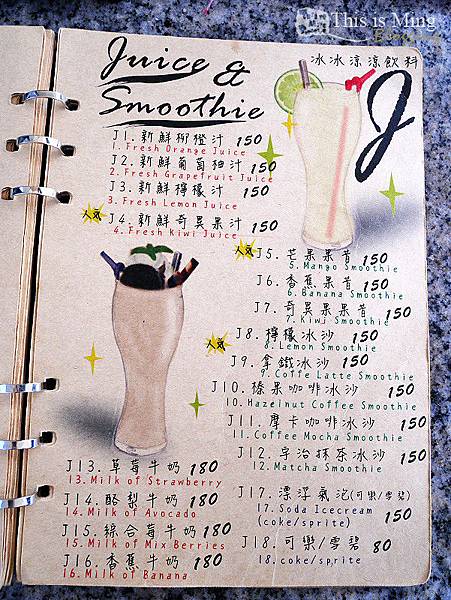 This is Ming
Juice &
Smoothie
冰冰涼涼飲料
J
J1. 新鮮柳橙汁 150
1. Fresh Orange Juice
J2. 新鮮葡萄柚汁 150
2. Fresh Grapefruit Juice
J3. 新鮮檸檬汁 150
3. Fresh Lemon Juice
人気
J4. 新鮮奇異果汁 150
4. Fresh Kiwi Juice
人気
J5. 芒果果昔 150
5. Mango Smoothie
J6. 香蕉果昔 150
6. Banana Smoothie
J7. 奇異果果昔 150
7. Kiwi Smoothie
人気
J8. 檸檬冰沙 150
8. Lemon Smoothie
J9. 拿鐵冰沙 150
9. Coffe Latte Smoothie
J10. 榛果咖啡冰沙 150
10. Hazelnut Coffee Smoothie
J11. 摩卡咖啡冰沙 150
11. Coffee Mocha Smoothie
J12. 宇治抹茶冰沙 150
12. Matcha Smoothie
J13. 草莓牛奶 180
13. Milk of Strawberry
J14. 酪梨牛奶 180
14. Milk of Avocado
J15. 綜合莓牛奶 180
15. Milk of Mix Berries
J16. 香蕉牛奶 180
16. Milk of Banana
J17. 漂浮氣泡(可樂/雪碧)
17. Soda Icecream
(coke/sprite) 150
J18. 可樂/雪碧 80
18. coke/sprite